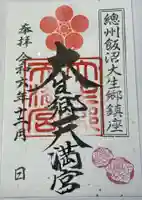 總州飯沼大生郷鎮座
奉拝
大生郷天満宮
令和六年十二月 日